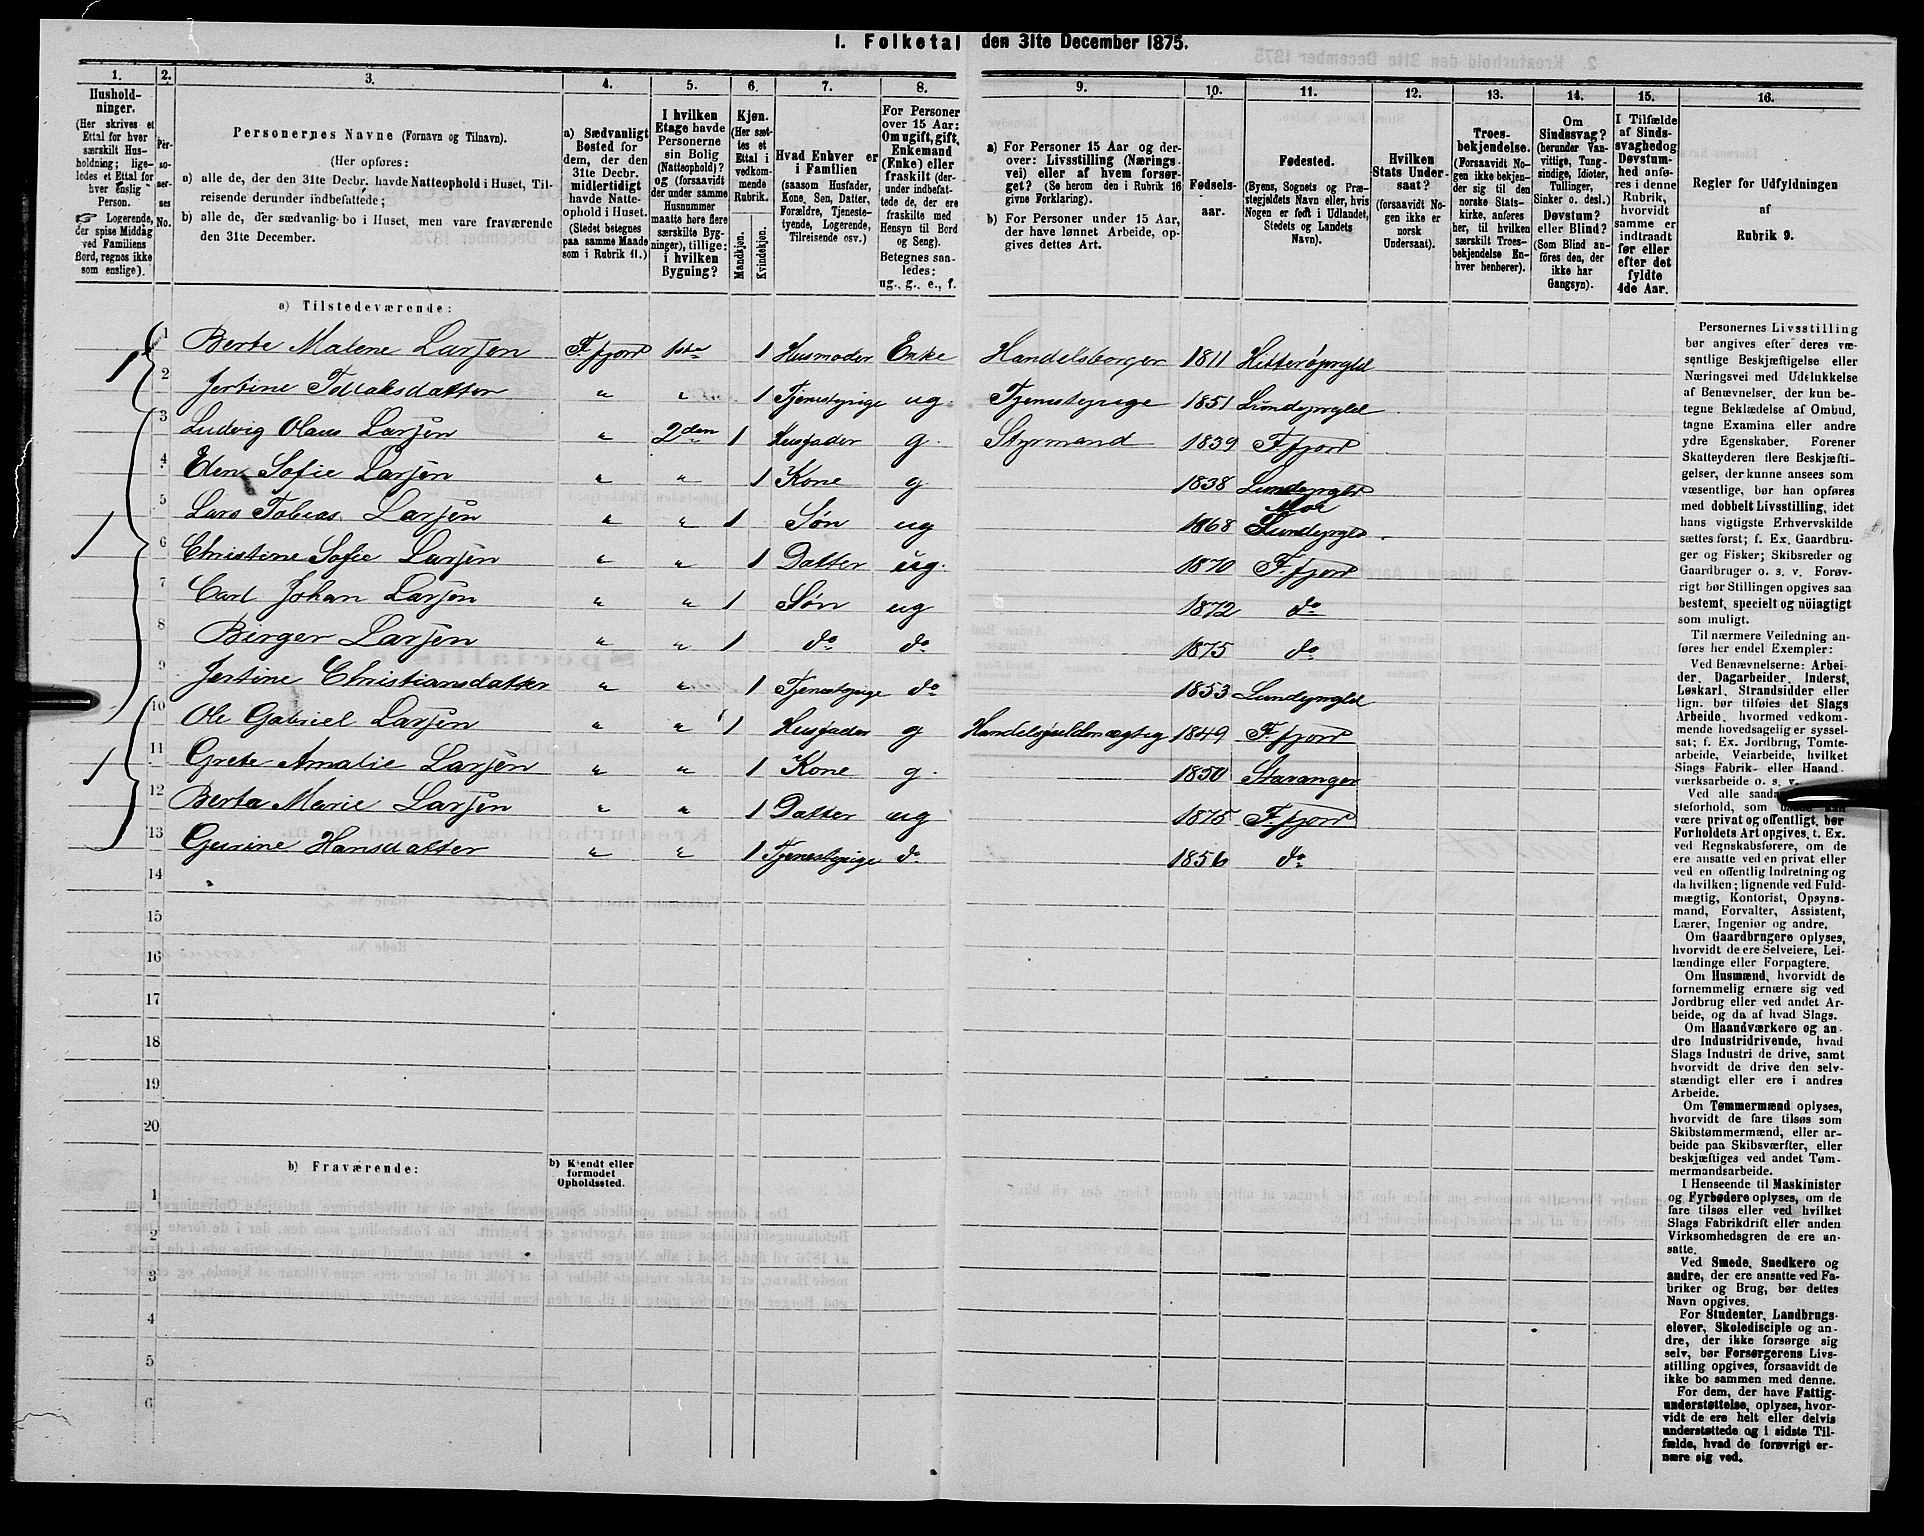 1. Folketal den 31te December 1875.
1. 2. 3. 4. 5. 6. 7. 8. 9. 10. 11. 12. 13. 14. 15. 16.
Hushold-
ninger.
(Her skrives et
Ettal for hver
særskilt Hus-
holdning; lige-
ledes et Ettal for
hver enslig
Person.
☞ Logerende,
der spise Middag
ved Familiens
Bord, regnes ikke
som enslige).
Per-
so-
ner-
nes
No.
Personernes Navne (Fornavn og Tilnavn).
(Her opføres:
a) alle de, der den 31te Decbr. havde Natteophold i Huset, Til-
reisende derunder indbefattede;
b) alle de, der sædvanlig bo i Huset, men vare fraværende
den 31te December.
a) Sædvanligt
Bosted for
dem, der den
31te Decbr.
midlertidigt
havde Natte-
ophold i Huset.
(Stedet betegnes
paa samme Maade
som i Rubrik 11.)
I hvilken
Etage havde
Personerne
sin Bolig
(Natteophold)?
og (forsaavidt
der under samme
Husnummer
maatte høre flere
særskilte Byg-
ninger), tillige:
i hvilken
Bygning?
Kjøn.
(Her sæt-
tes et
Ettal i
vedkom-
mende
Rubrik.
Mandkjøn.
Kvindekjøn.
Hvad Enhver er
i Familien
(saasom Husfader,
Kone, Søn, Datter,
Forældre, Tjeneste-
tyende, Logerende,
Tilreisende osv.)
For Personer
over 15 Aar:
Om ugift, gift,
Enkemand
(Enke) eller
fraskilt (der-
under indbefat-
tede de, der ere
fraskilte med
Hensyn til Bord
og Seng).
Betegnes saa-
ledes:
ug., g., e., f.
a) For Personer 15 Aar og der-
over: Livsstilling (Nærings-
vei) eller af hvem forsør-
get? (Se herom den i Rubrik 16
givne Forklaring).
b) For Personer under 15 Aar,
der have lønnet Arbeide, op-
gives dettes Art.
Fødsels-
aar.
Fødested.
(Byens, Sognets og Præ-
stegjeldets Navn eller, hvis
Nogen er født i Udlandet,
Stedets og Landets
Navn).
Hvilken
Stats Under-
saat?
(forsaavidt No-
gen ikke er
norsk
Undersaat).
Troes-
bekjendelse.
(Forsaavidt No-
gen ikke bekjen-
der sig til den
norske Stats-
kirke, anføres
her, til hvilken
særskilt Troes-
bekjendelse En-
hver henhører).
Om
Sindssvag?
(herunder Van-
vittige, Tung-
sindige, Idioter,
Tullinger,
Sinker o. desl.)
Døvstum?
eller Blind?
(Som Blind an-
føres den, der
ikke har
Gangsyn).
I Tilfælde
af Sinds-
svaghed og
Døvstum-
hed anfø-
res i denne
Rubrik,
hvorvidt
samme er
indtraadt
før eller
efter det
fyldte
4de Aar.
Regler for Udfyldningen
af
Rubrik 9.
a) Tilstedeværende:
1 Berte Malene Larsen F.fjord 1ste 1 Husmoder Enke Handelsborger 1811 Hitterøprgld
2 Jertine Tollaksdatter " " 1 Tjenestepige ug. Tjenestepige 1851 Lundeprgld
3 Ludvig Olaus Larsen " 2den 1 Husfader g. Styrmand 1839 F.fjord
4 Elen Sofie Larsen " " 1 Kone g. 1838 Lundeprgld
Moe
5 Lars Tobias Larsen " " 1 Søn ug 1868 Lundeprgld
6 Christine Sofie Larsen " " 1 Datter ug. 1870 F.fjord
7 Carl Johan Larsen " " 1 Søn ug 1872 do
8 Birger Larsen " " 1 do do 1875 do
9 Jertine Christiansdatter " " 1 Tjenestepige do 1853 Lundeprgld
10 Ole Gabriel Larsen " " 1 Husfader g Handelsfuldmægtig 1849 F.fjord
11 Grete Amalie Larsen " " 1 Kone g. 1850 Stavanger
12 Berta Marie Larsen " " 1 Datter ug 1875 F.fjord
13 Gurine Hansdatter " " 1 Tjenestepige do 1856 do
14
15
16
17
18
19
20
b) Fraværende:
b) Kjendt eller
formodet
Opholdssted.
1
2
3
4
5
6
Personernes Livsstilling
bør angives efter deres væ-
sentlige Beskjæftigelse eller
Næringsvei med Udelukkelse
af Benævnelser, der kun be-
tegne Beklædelse af Ombud,
tagne Examina eller andre
ydre Egenskaber. Forener
Skatteyderen flere Beskjæfti-
gelser, der kunne ansees som
væsentlige, bør han opføres
med dobbelt Livsstilling, idet
hans vigtigste Erhvervskilde
sættes først; f. Ex. Gaardbru-
ger og Fisker; Skibsreder og
Gaardbruger o. s. v. Forøv-
rigt bør Stillingen opgives saa
bestemt, specielt og nøiagtigt
som muligt.
Til nærmere Veiledning an-
føres her endel Exempler:
Ved Benævnelserne: Arbei-
der, Dagarbeider, Inderst,
Løskarl, Strandsidder eller
lign. bør tilføies det Slags
Arbeide, hvormed vedkom-
mende hovedsagelig er syssel-
sat; f. Ex. Jordbrug, Tomte-
arbeide, Veiarbeide, hvilket
Slags Fabrik- eller Haand-
værksarbeide o. s. v.
Ved alle saada
steforhold, som
være privat og offentligt, bør
Forholdets Art opgives, t. Ex.
ved Regnskabsførere, om de
ere ansatte ved en privat eller
ved en offentlig Indretning og
da hvilken; lignende ved Fuld-
mægtig, Kontorist, Opsyns-
mand, Forvalter, Assistent,
Lærer, Ingeniør og andre.
Om Gaardbrugere oplyses,
hvorvidt de ere Selveiere, Lei-
lændinge eller Forpagtere.
Om Husmænd, hvorvidt de
fornemmelig ernære sig ved
Jordbrug eller ved andet Ar-
beide, og da af hvad Slags.
Om Haandværkere og an-
dre Industridrivende, hvad
Slags Industri de drive, samt
hvorvidt de drive den selv-
stændigt eller ere i andres
Arbeide.
Om Tømmermænd oplyses,
hvorvidt de fare tilsøs som
Skibstømmermænd, eller ar-
beide paa Skibsværfter, eller
beskjæftiges ved andet Tøm-
mermandsarbeide.
I Henseende til Maskinister
og Fyrbødere oplyses, om de
fare tilsøs eller ved hvilket
Slags Fabrikdrift eller anden
Virksomhedsgren de ere an-
satte.
Ved Smede, Snedkere og
andre, der ere ansatte ved Fa-
briker og Brug, bør dettes
Navn opgives.
For Studenter, Landbrugs-
elever, Skoledisciple og an-
dre, der ikke forsørge sig
selv, bør Forsørgerens Livs-
stilling opgives, forsaavidt de
ikke bo sammen med denne.
For dem, der have Fattig-
understøttelse, oplyses, hvor-
vidt de ere helt eller delvis
understøttede og i sidste Til-
fælde, hvad de forøvrigt er-
nære sig ved.